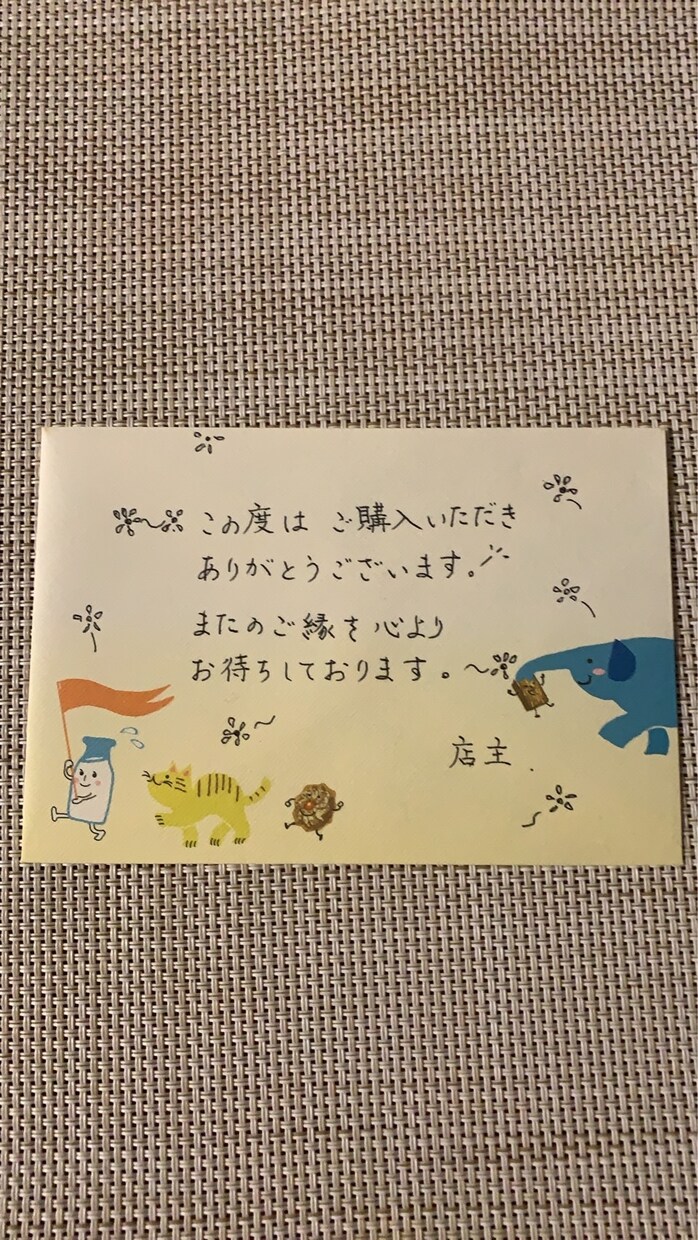 この度は ご購入いただき
ありがとうございます。
またのご縁を心より
お待ちしております。
店主.